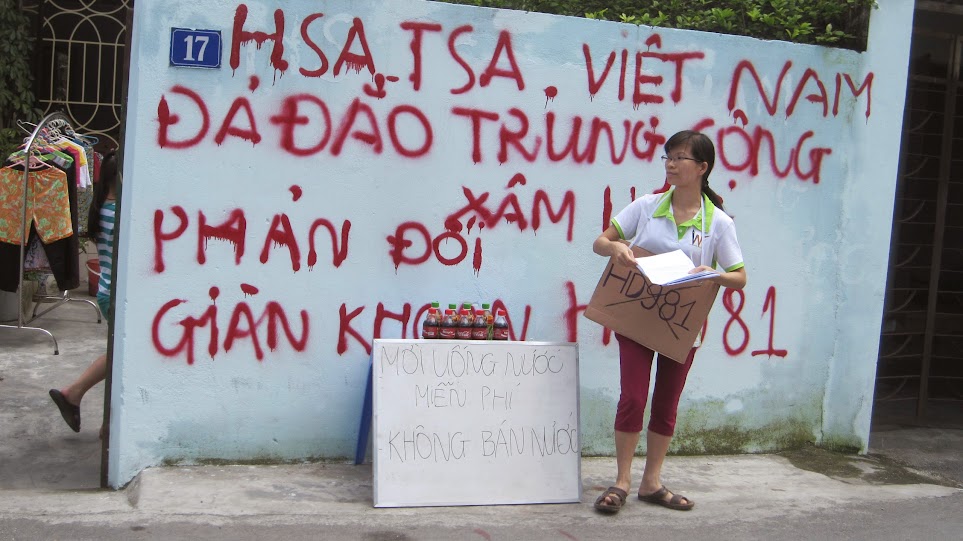 17
H.SA, TSA. VIỆT NAM
ĐẢ ĐẢO TRUNG CỘNG
PHẢN ĐỐI XÂM
GIÀN KHOAN
HD981
MỜI UỐNG NƯỚC
MIỄN PHÍ
KHÔNG BÁN NƯỚC